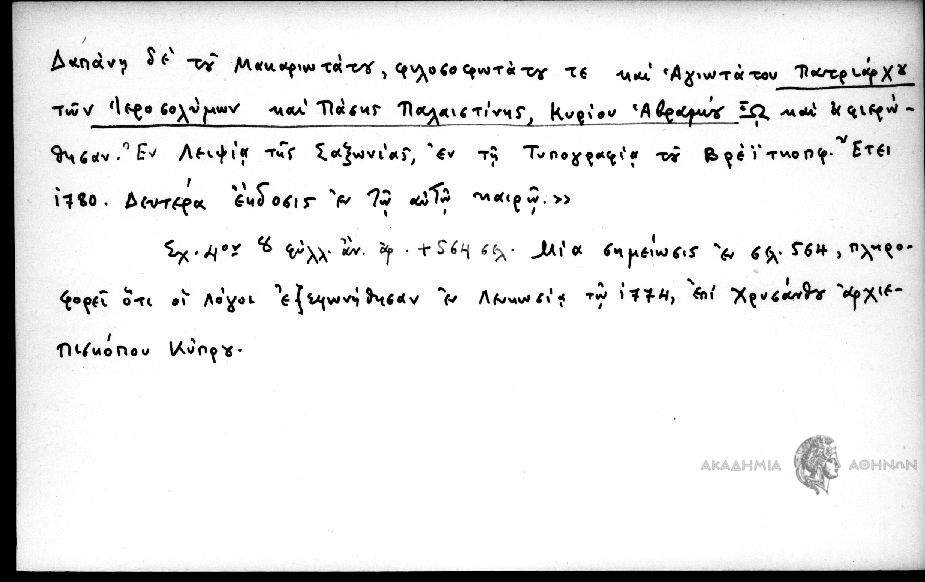 Δαπάνῃ δὲ τοῦ Μακαριωτάτου, φιλοσοφωτάτου τε καὶ Ἁγιωτάτου Πατριάρχου
τῶν Ἱεροσολύμων καὶ Πάσης Παλαιστίνης, Κυρίου Ἀβραμίου ᾯ καὶ ἀφιερώ-
θησαν. Ἐν Λειψίᾳ τῆς Σαξωνίας, ἐν τῇ Τυπογραφίᾳ τοῦ Βρέϊτκοπφ. Ἔτει
1780. Δευτέρα ἔκδοσις ἐν τῷ αὐτῷ καιρῷ.»
Σχ. 4ον 8 φύλλ. ἄν. ἀρ. + 564 σελ. Μία σημείωσις ἐν σελ. 564, πληρο-
φορεῖ ὅτι οἱ λόγοι ἐξεφωνήθησαν ἐν Λευκωσίᾳ τῷ 1774, ἐπὶ Χρυσάνθου ἀρχιε-
πισκόπου Κύπρου.
ΑΚΑΔΗΜΙΑ ΑΘΗΝΩΝ